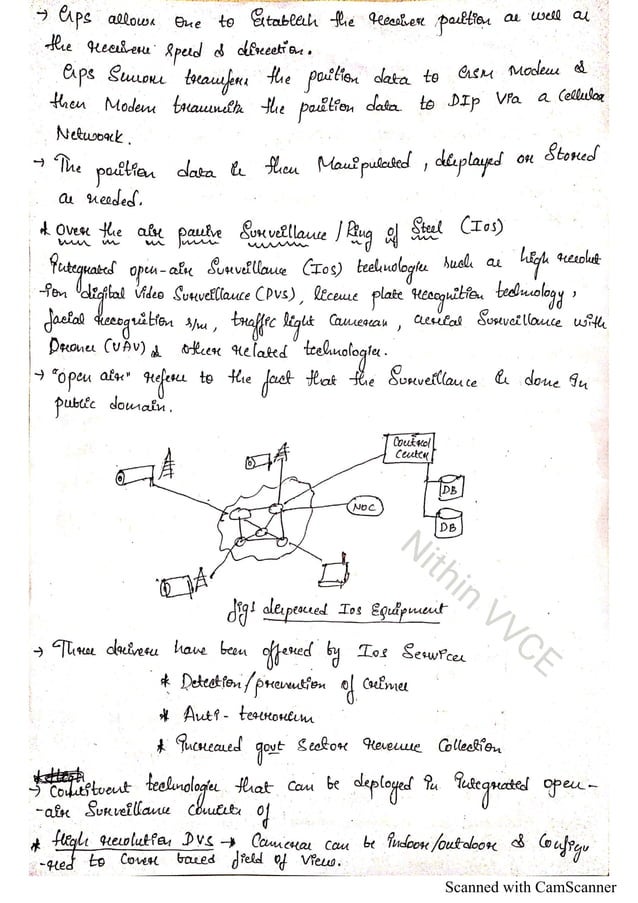 → GPS allows one to Establish the Receiver position as well as
the receivers speed & direction.
GPS Sensors transfers the position data to GSM Modem &
then Modem transmits the position data to DIp Via a Cellular
Network.
→ The position data is then Manipulated, displayed or Stored
as needed.
* Over the air passive Surveillance / Ring of Steel (Ios)
Integrated open-air Surveillance (Ios) technologies such as high resolut
-ion digital Video Surveillance (DVS), license plate recognition technology,
facial recognition s/m, traffic light Cameras, aerial Surveillance with
Drones (UAV) & other related technologies.
→ "open air" refers to the fact that the Surveillance is done in
public domain.
Control
Center
DB
DB
NOC
fig: dispersed Ios Equipment
→ Three drivers have been offered by Ios Services
* Detection/prevention of crimes
* Anti-terrorism
* Increased govt Sector Revenue Collection
→ Constituent technologies that can be deployed in Integrated open-
-air Surveillance consists of
* High resolution DVS → Cameras can be indoor/outdoor & Configu
-red to Cover based field of View.
Nithin VVCE
Scanned with CamScanner